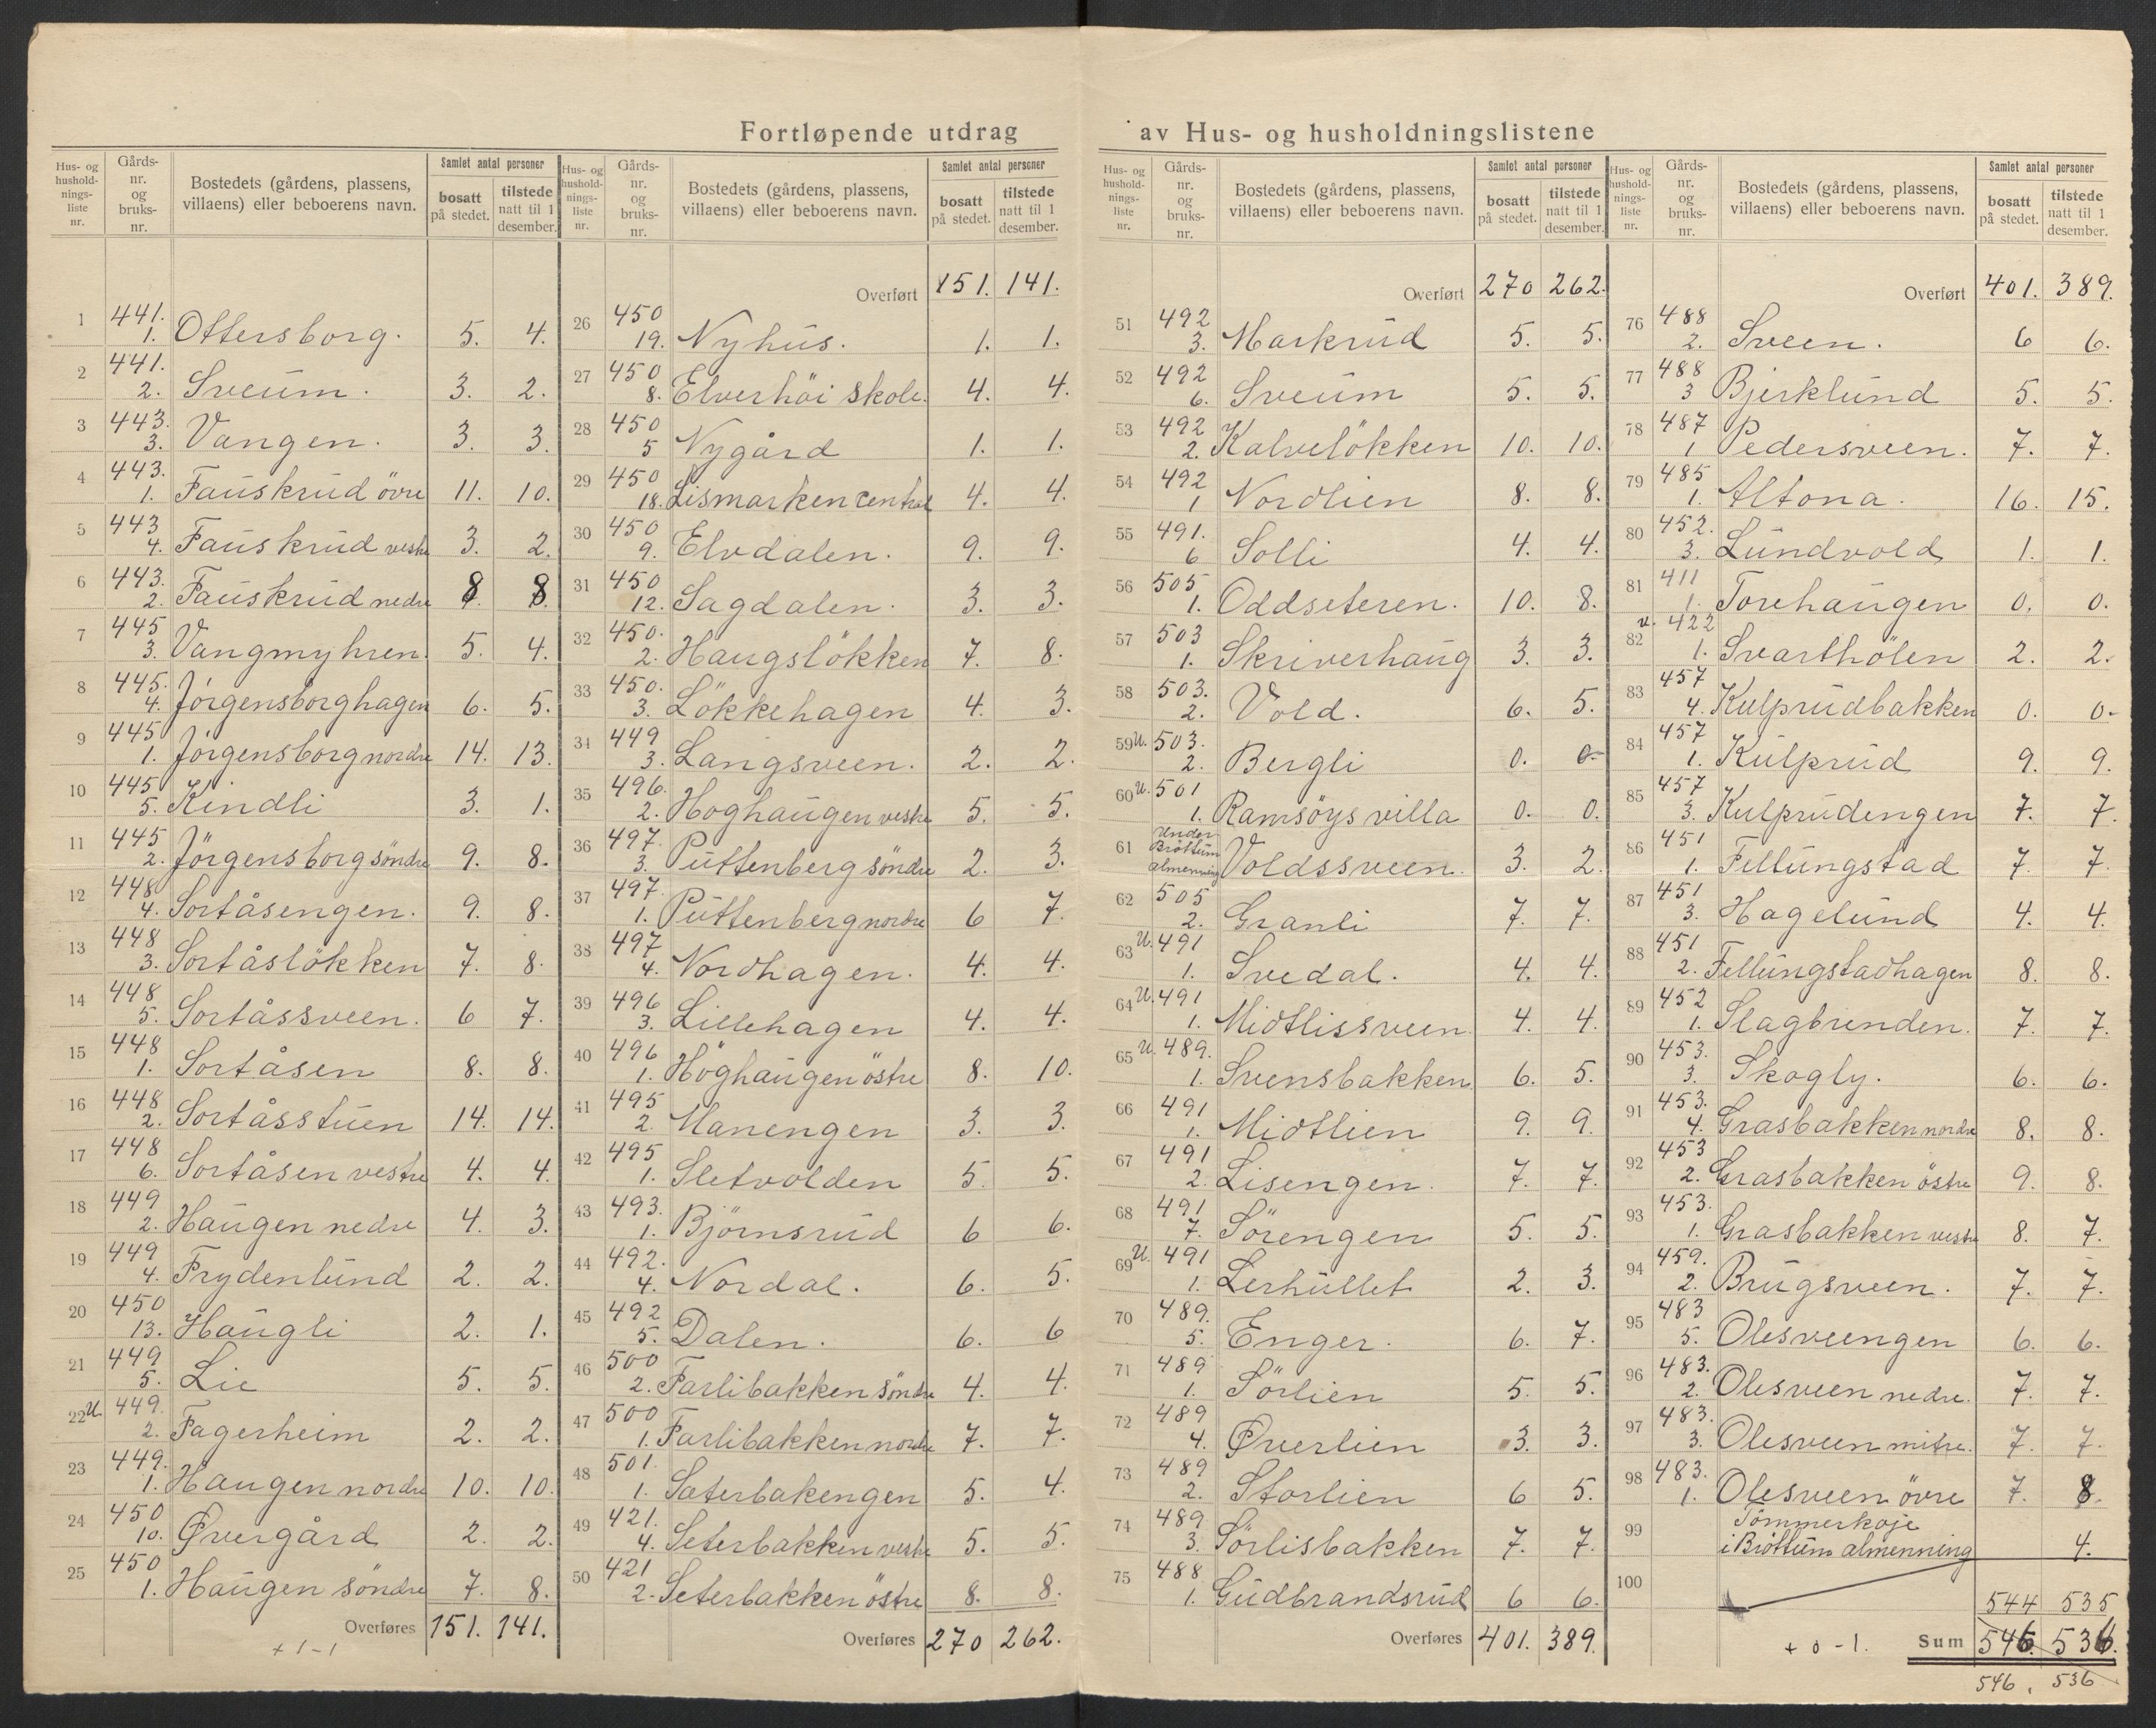 Fortløpende utdrag av Hus- og husholdningslistene
Hus- og husholdnings-liste nr. Gårds-nr. og bruks-nr. Bostedets (gårdens, plassens, villaens) eller beboerens navn. Samlet antal personer bosatt på stedet. tilstede natt til 1 desember.
1 441. 1. Ottersborg. 5. 4.
2 441. 2. Sveum. 3. 2.
3 443. 3. Vangen. 3. 3.
4 443. 1. Fauskrud övre 11. 10.
5 443 4. Fauskrud vestre 3. 2.
6 443. 2. Fauskrud nedre 8 8.
7 445 3. Vangmyhren. 5. 4.
8 445. 4. Jörgensborghagen 6. 5.
9 445 1. Jörgensborg nordre 14. 13.
10 445 5. Kindli 3. 1.
11 445 2. Jörgensborg söndre 9. 8.
12 448 4. Sortåsengen. 9. 8.
13 448 3. Sortåslökken 7. 8.
14 448 5. Sortåssveen. 6 7.
15 448 1. Sortåsen 8. 8.
16 448 2. Sortåsstuen 14. 14.
17 448 6. Sortåsen vestre 4. 4.
18 449 2. Haugen nedre 4. 3.
19 449 4. Frydenlund 2. 2.
20 450 13. Haugli 2. 1.
21 449 5. Lie 5. 5.
22 U. 449. 2. Fagerheim 2. 2.
23 449. 1. Haugen nordre 10. 10.
24 450 10. Øvergård 2. 2.
25 450 1. Haugen söndre 7. 8.
Overføres 151. 141.
+ 1 - 1
Hus- og husholdnings-liste nr. Gårds-nr. og bruks-nr. Bostedets (gårdens, plassens, villaens) eller beboerens navn. Samlet antal personer bosatt på stedet. tilstede natt til 1 desember.
Overført 151. 141.
26 450 19. Nyhus. 1. 1.
27 450 8. Elverhöi skole. 4. 4.
28 450 5 Nygård 1. 1.
29 450 18. Lismarken central 4. 4.
30 450 9. Elvdalen. 9. 9.
31 450 12. Sagdalen. 3. 3.
32 450. 2. Haugslökken 7. 8.
33 450. 3. Lökkehagen 4. 3.
34 449 3. Langsveen. 2. 2.
35 496. 2. Höghaugen vestre 5. 5.
36 497. 3. Puttenberg söndre 2. 3.
37 497. 1. Puttenberg nordre 6 7.
38 497 4. Nordhagen. 4. 4.
39 496 3. Lillehagen 4. 4.
40 496 1. Höghaugen östre 8. 10.
41 495 2. Manengen 3. 3.
42 495 1. Sletvolden 5 5.
43 493. 1. Björnsrud 6 6.
44 492. 4. Nordal. 6. 5.
45 492 5. Dalen. 6. 6
46 500 2. Farlibakken söndre 4. 4.
47 500 1. Farlibakken nordre 7. 7.
48 501. 1. Sæterbakengen 5. 4.
49 421. 4. Seterbakken vestre 5. 5.
50 421 2. Seterbakken östre 8. 8.
Overføres 270 262.
Hus- og husholdnings-liste nr. Gårds-nr. og bruks-nr. Bostedets (gårdens, plassens, villaens) eller beboerens navn. Samlet antal personer bosatt på stedet. tilstede natt til 1 desember.
Overført 270 262.
51 492 3. Markrud 5. 5.
52 492 6. Sveum 5. 5.
53 492 2. Kalvelökken 10. 10.
54 492 1 Nordlien 8. 8.
55 491. 6 Solli 4. 4.
56 505 1. Oddseteren. 10. 8.
57 503 1. Skriverhaug 3. 3.
58 503. 2. Vold. 6. 5.
59 U. 503. 2. Bergli 0. 0-
60 U. 501 1. Ramsöys villa 0. 0.
61 Under Bröttum almenning Voldssveen. 3. 2.
62 505 2. Granli 7. 7.
63 U. 491 1. Svedal. 4. 4.
64 U. 491 1. Midtlissveen. 4. 4.
65 U. 489. 1. Svensbakken. 6. 5.
66 491 1. Midtlien 9. 9.
67 491 2. Lisengen. 7. 7.
68 491 7. Sörengen 5. 5.
69 U. 491 1. Lerhullet 2. 3.
70 489. 5. Enger. 6. 7.
71 489 1. Sörlien 5. 5.
72 489 4. Øverlien 3. 3.
73 489 2. Storlien 6 5.
74 489 3. Sörlisbakken 7. 7.
75 488 1. Gudbrandsrud 6 6.
Overføres 401. 389.
Hus- og husholdnings-liste nr. Gårds-nr. og bruks-nr. Bostedets (gårdens, plassens, villaens) eller beboerens navn. Samlet antal personer bosatt på stedet. tilstede natt til 1 desember.
Overført 401. 389.
76 488 2. Sveen. 6 6.
77 488 3 Bjerklund 5. 5.
78 487 1 Pedersveen. 7. 7.
79 485 1. Altona. 16. 15.
80 452. 3. Lundvold 1. 1.
81 411 1. Torehaugen 0. 0.
82 u. 422 1. Svartholen 2. 2.
83 457 4. Kulprudbakken 0. 0-
84 457 1. Kulprud 9. 9.
85 457 3. Kulprudengen 7. 7.
86 451 1. Fellungstad 7. 7.
87 451 3. Hagelund 4. 4.
88 451 2. Fellungstadhagen 8. 8.
89 452 1. Slagbrenden. 7. 7.
90 453. 3. Skogly. 6. 6.
91 453. 4. Grasbakken nordre 8. 8.
92 453 2. Grasbakken östre 9. 8.
93 453. 1. Grasbakken vestre 8. 7.
94 459. 2. Brugsveen. 7. 7.
95 483 5. Olesveengen 6. 6.
96 483. 2. Olesveen nedre. 7. 7.
97 483. 3. Olesveen mitre. 7. 7.
98 483. 1. Olesveen övre 7. 8.
99 Tömmerkoje i Bröttum almenning 4.
100
544 535
+ 0 - 1. Sum 546. 536.
546. 536